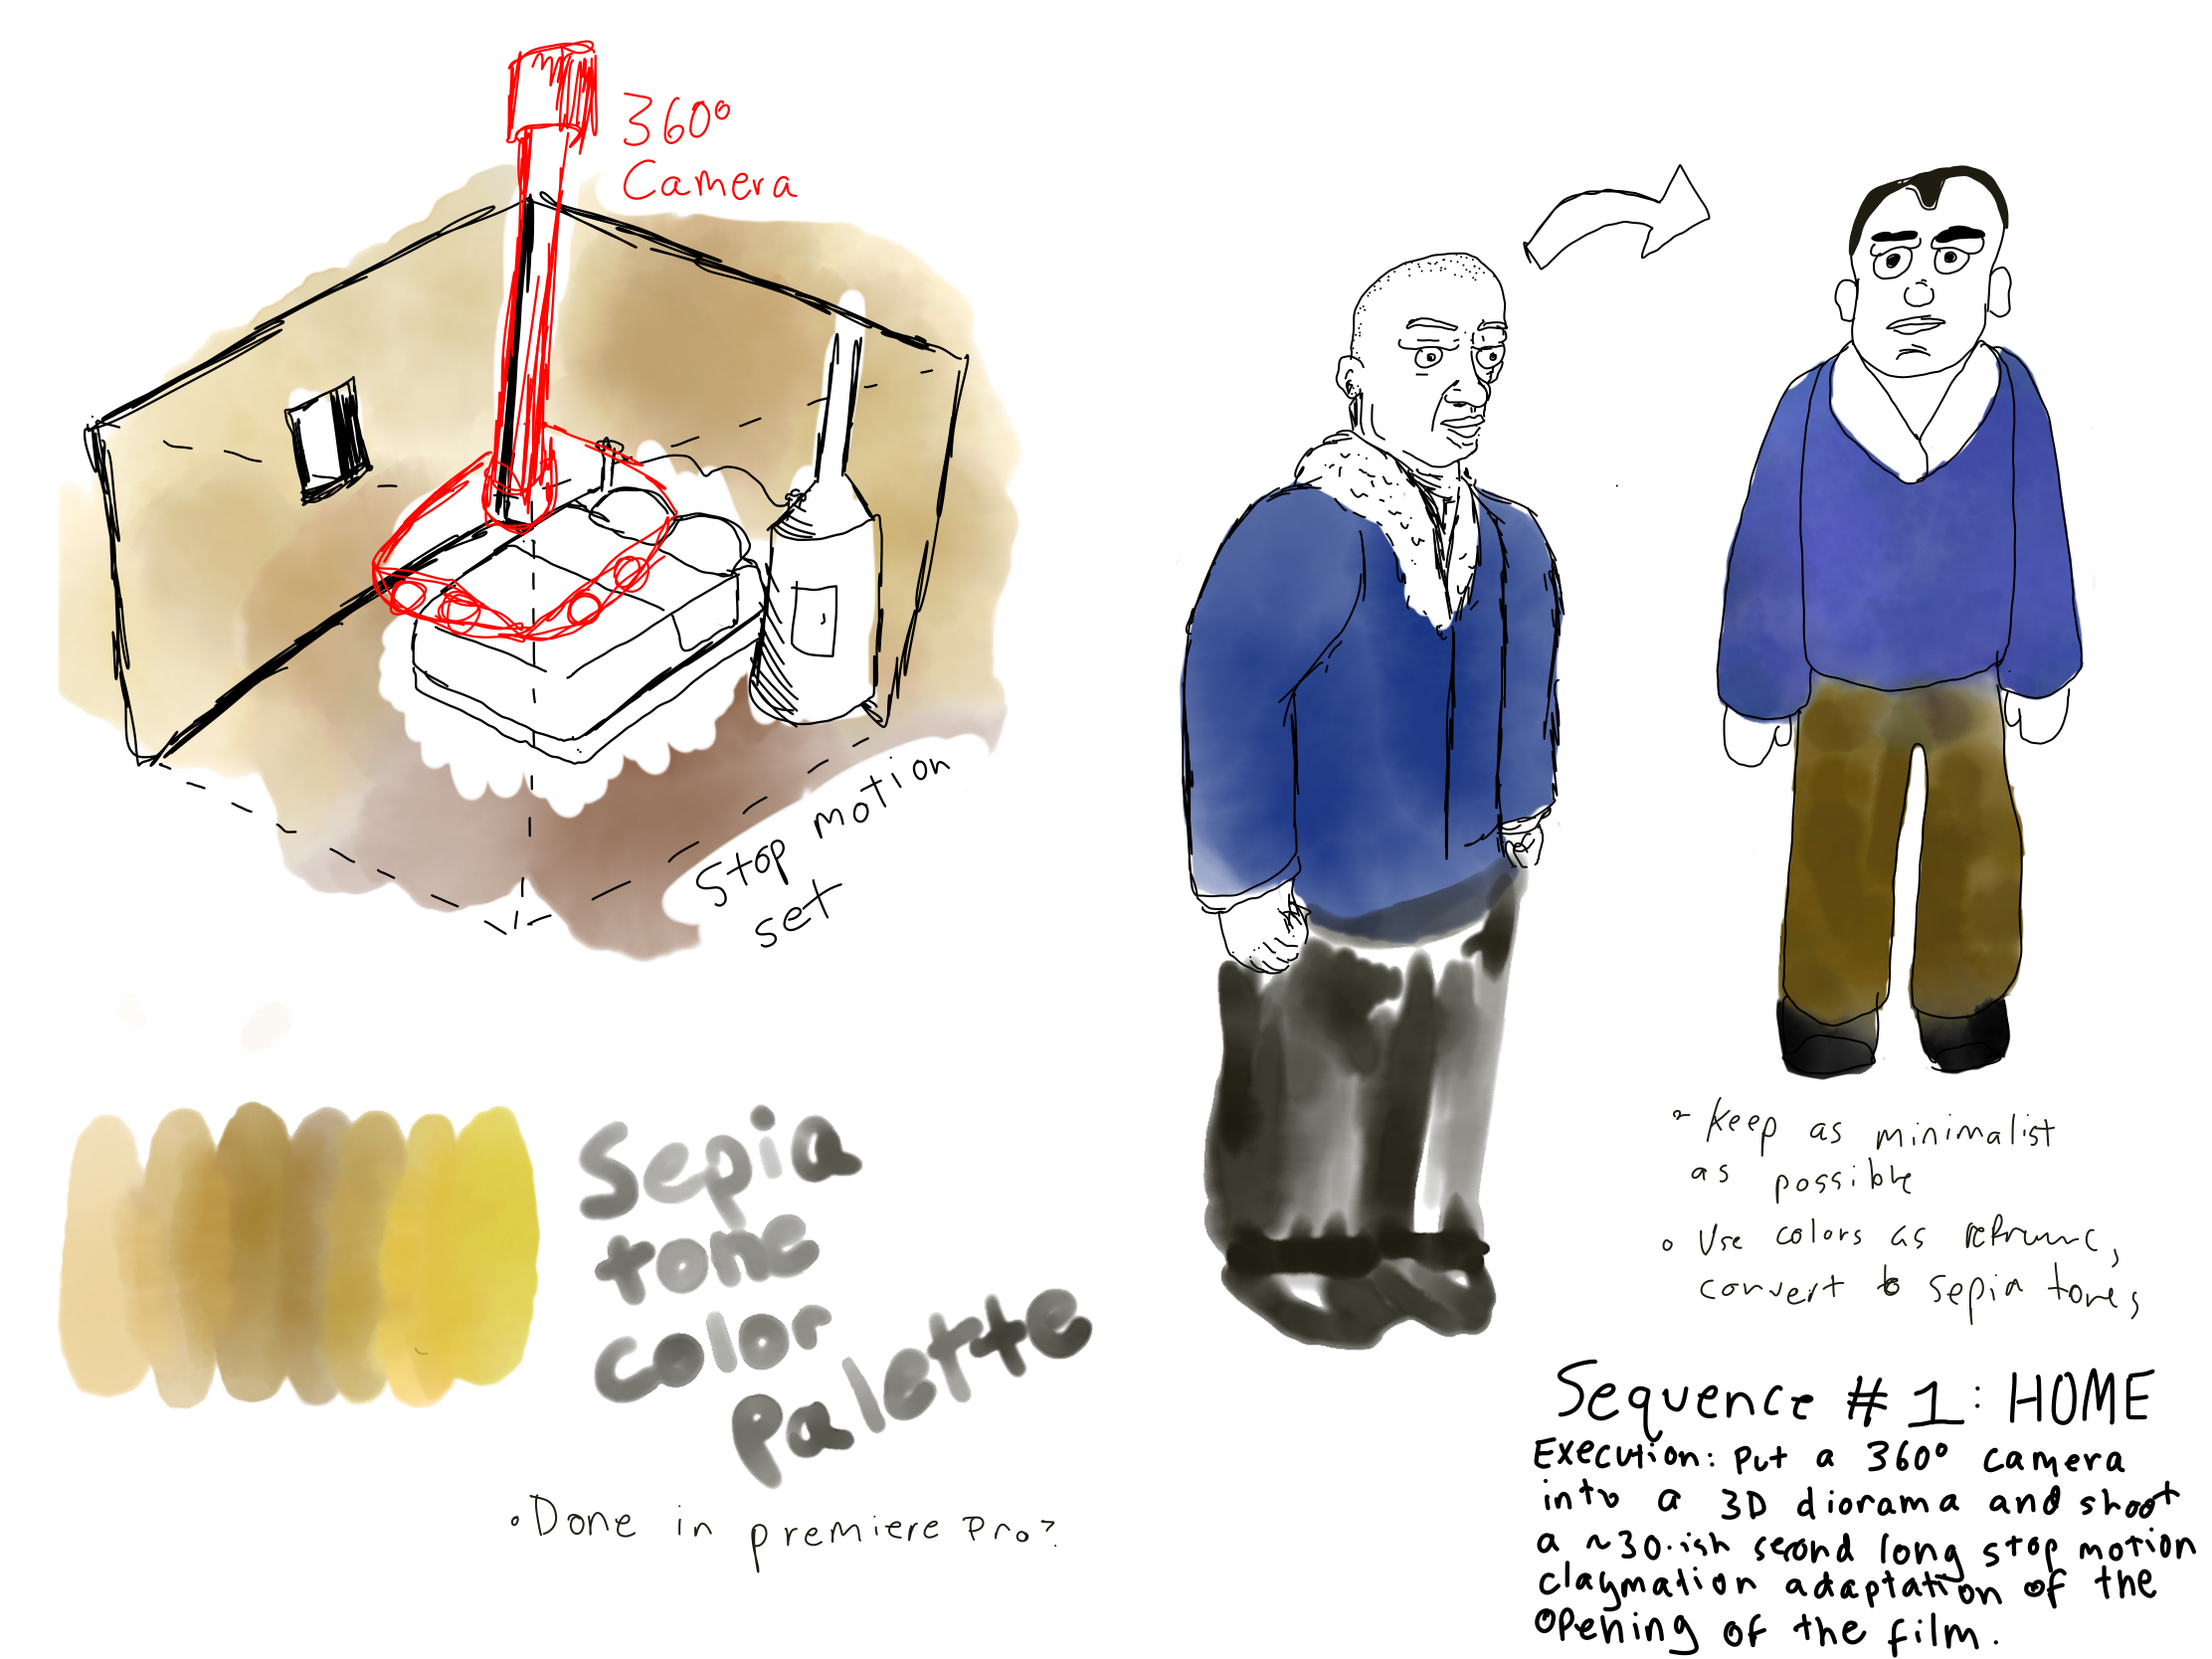 360°
Camera
Stop motion
set
Sepia
tone
color
palette
• Done in premiere Pro?
• Keep as minimalist
as possible
• Use colors as
convert to sepia tones
Sequence #1: HOME
Execution: Put a 360° camera
into a 3D diorama and shoot
a ~30-ish second long stop motion
claymation adaptation of the
opening of the film.